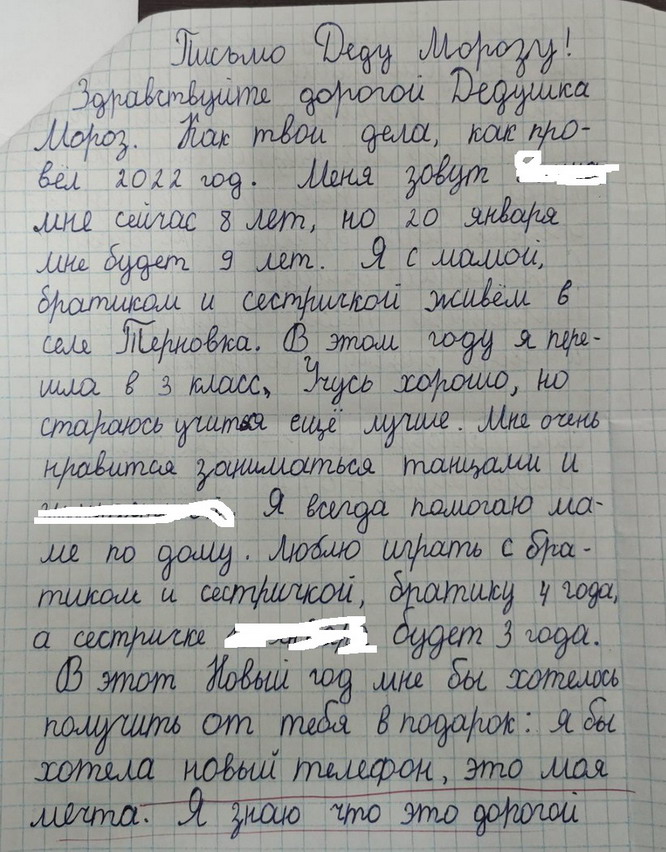 Письмо Деду Морозу!
Здравствуйте дорогой Дедушка
Мороз. Как твои дела, как про-
вёл 2022 год. Меня зовут
мне сейчас 8 лет, но 20 января
мне будет 9 лет. Я с мамой,
братиком и сестричкой живём в
селе Терновка. В этом году я пере-
шла в 3 класс, Учусь хорошо, но
стараюсь учиться ещё лучше. Мне очень
нравится заниматься танцами и
Я всегда помогаю ма-
ме по дому. Люблю играть с бра-
тиком и сестричкой, братику 4 года,
а сестричке будет 3 года.
В этот Новый год мне бы хотелось
получить от тебя в подарок: я бы
хотела новый телефон, это моя
мечта. Я знаю что это дорогой